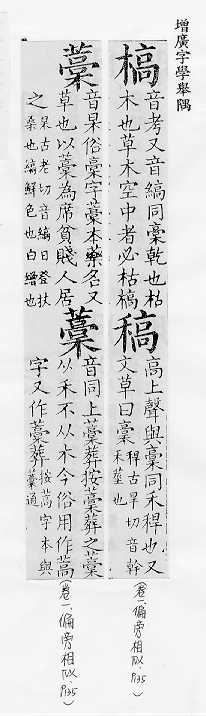 增廣字學舉隅
槁
音考又音縞同槀乾也枯
木也草木空中者必枯槁
稿
高上聲與稾同禾稈也又
文草曰稾
稈古旱切音幹
禾莖也
(卷一、偏旁相似、P35)
藁
音杲俗槀字藁本藥名又
草也以藁為席貧賤人居
之
杲古老切音縞日登扶
桑也縞鮮色也白繒也
藳
音同上藳葬按藳葬之藳
以禾不从木今俗用作蒿
字又作藁葬
按蒿字本與
藁通
(卷一、偏旁相似、P35)